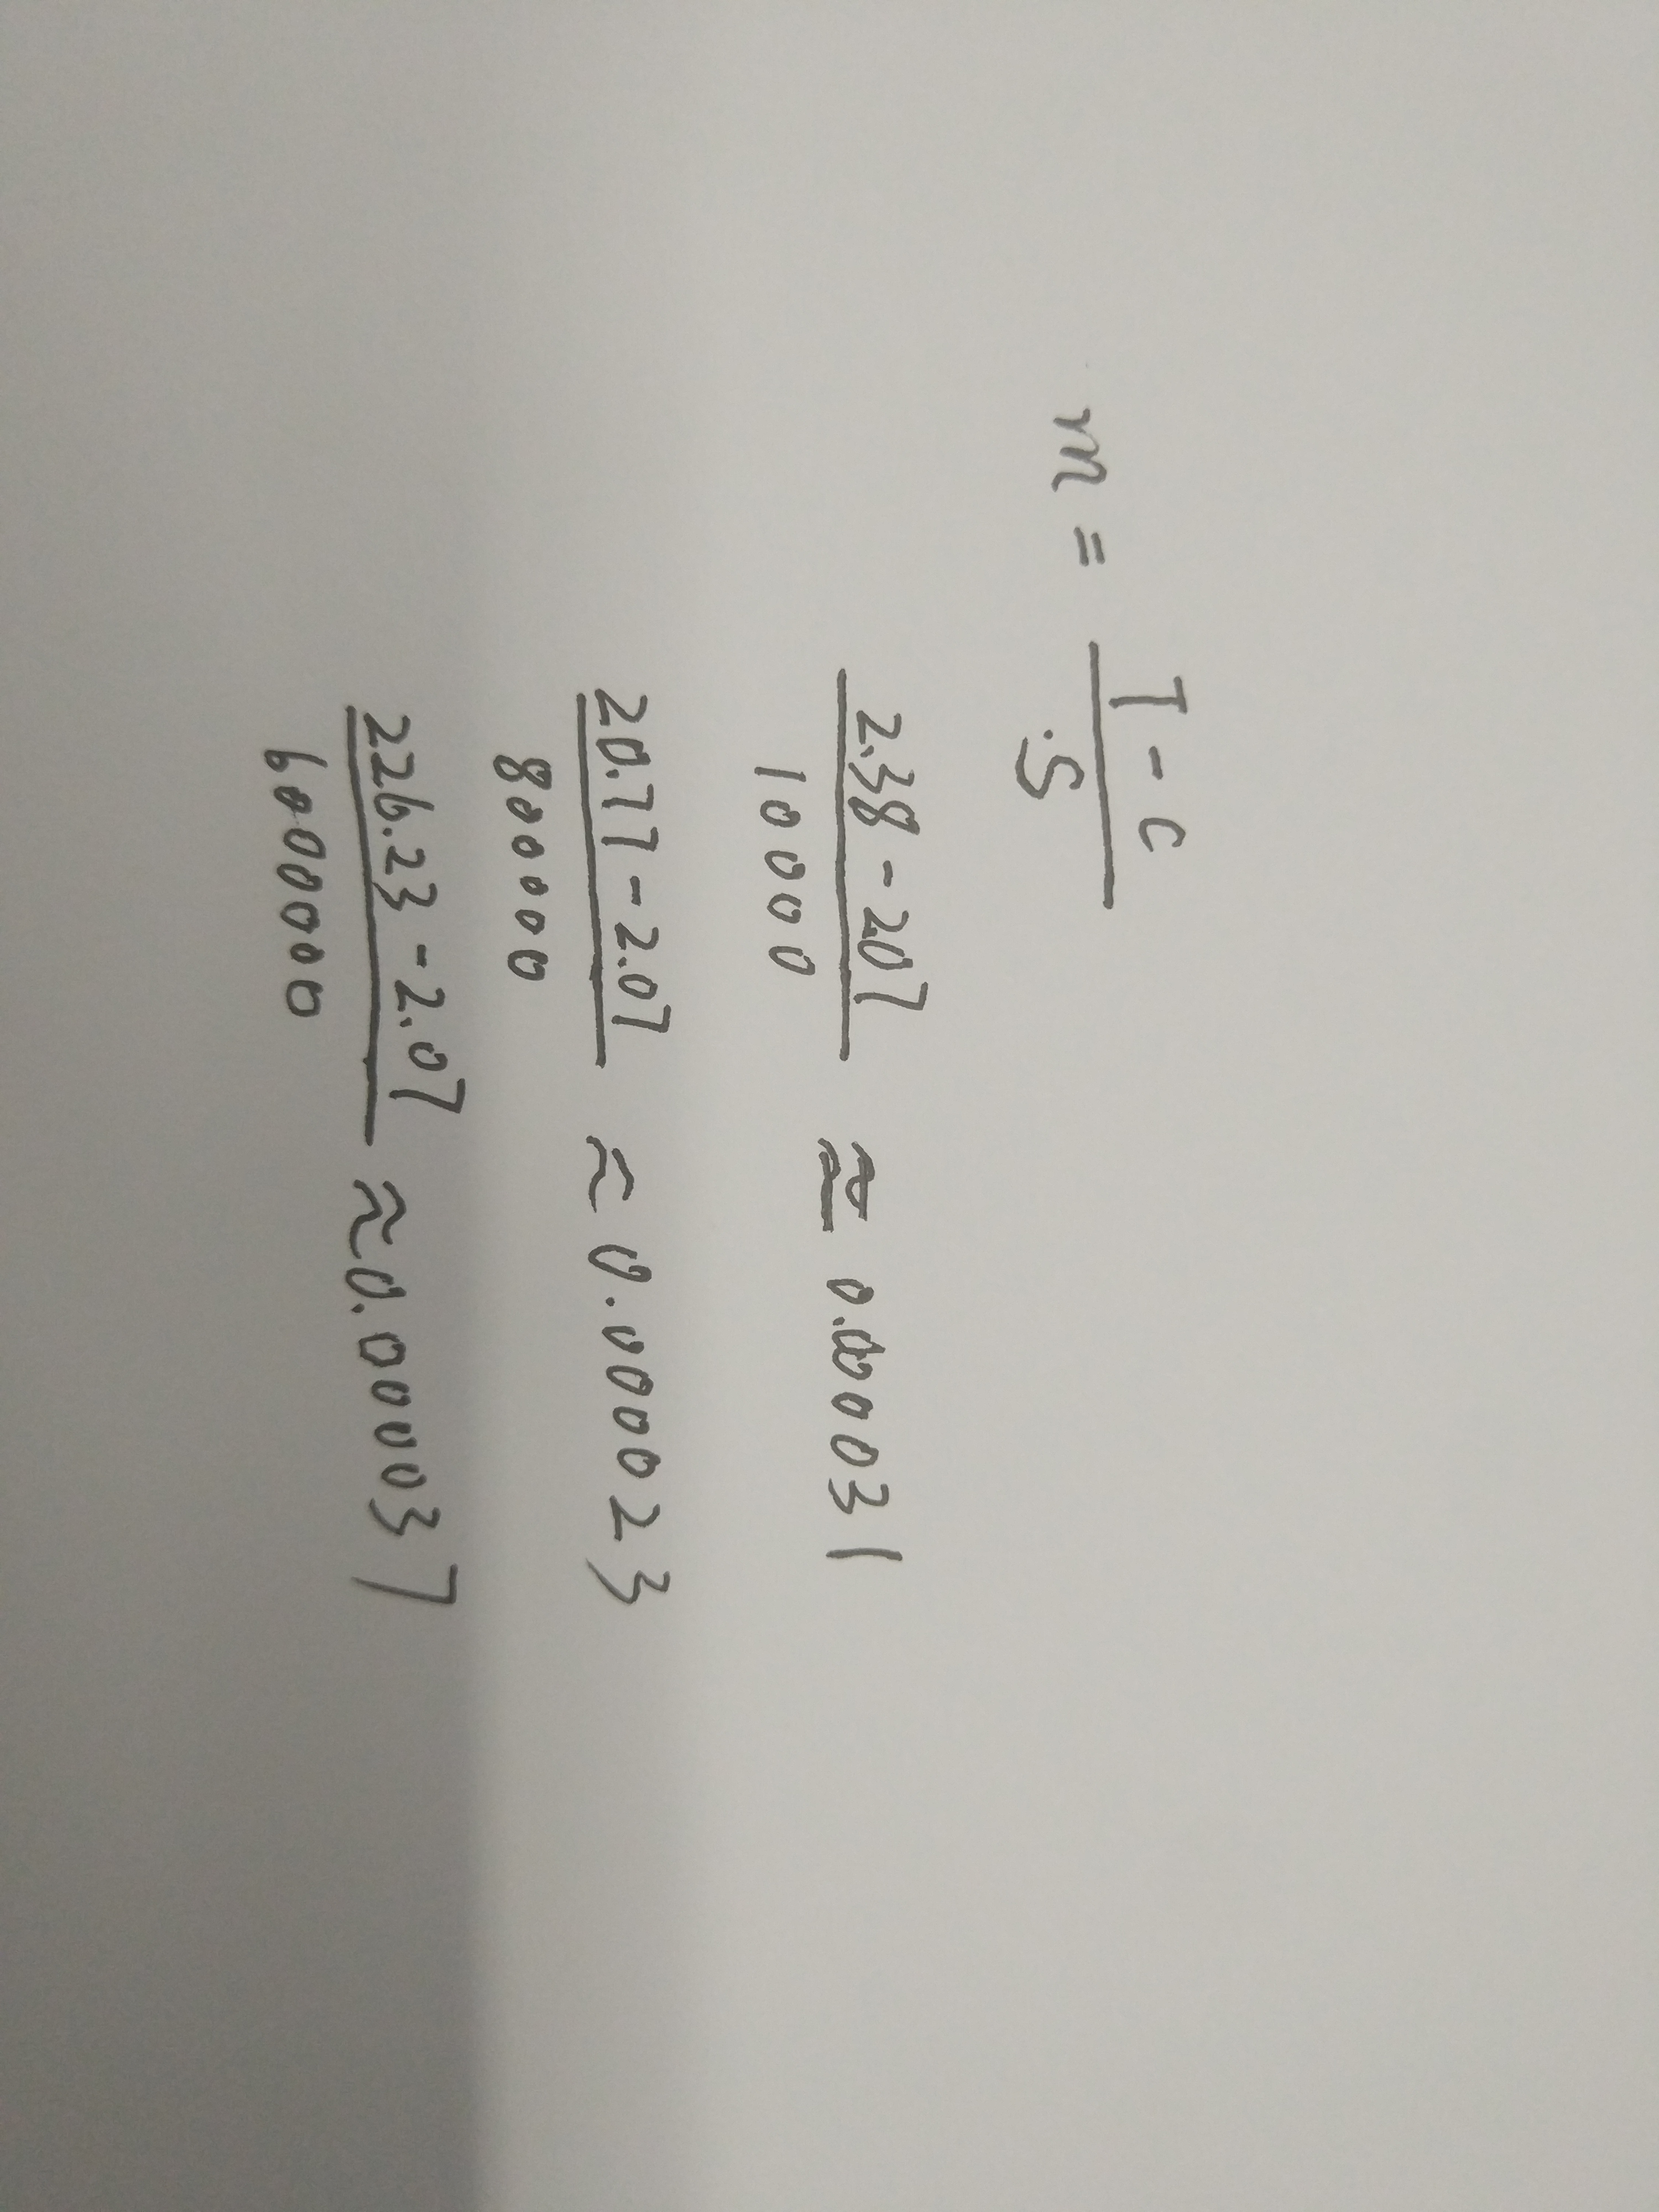 m = T - C
S
2.38 - 2.07
10000
≈ 0.000031
20.77 - 2.07
800000
≈ 0.000023
226.23 - 2.07
6000000
≈ 0.000037